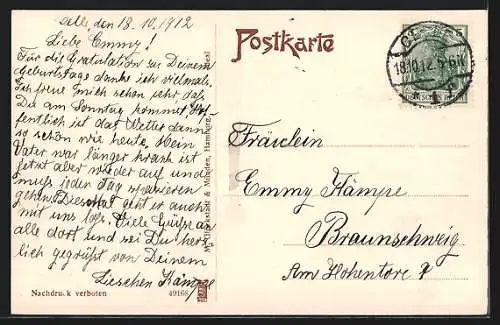 Celle, den 18.10.1912
Liebe Emmy!
Für die Gratulation zu Deinem
Geburtstage danke ich vielmals.
Ich freue mich schon sehr, daß
Du am Sonntag kommst. Hof-
fentlich ist das Wetter dann
so schön wie heute. Mein
Vater war länger krank ist
jetzt aber wieder auf und
muß jeden Tag spazieren
gehen. Diesmal geht er auch
mit uns los. Viele Grüße an
alle dort und sei Du herz-
lich gegrüßt von Deinem
Lieschen
Nachdru.k verboten 49168
München, Hamburg
Postkarte
18.10.12.5-6N
Fräulein
Emmy
Braunschweig
Am Hohentore